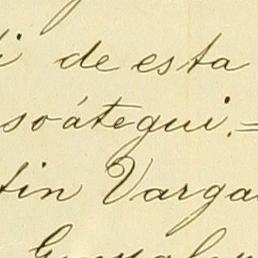 i de esta
soátegui.=
tin Varga